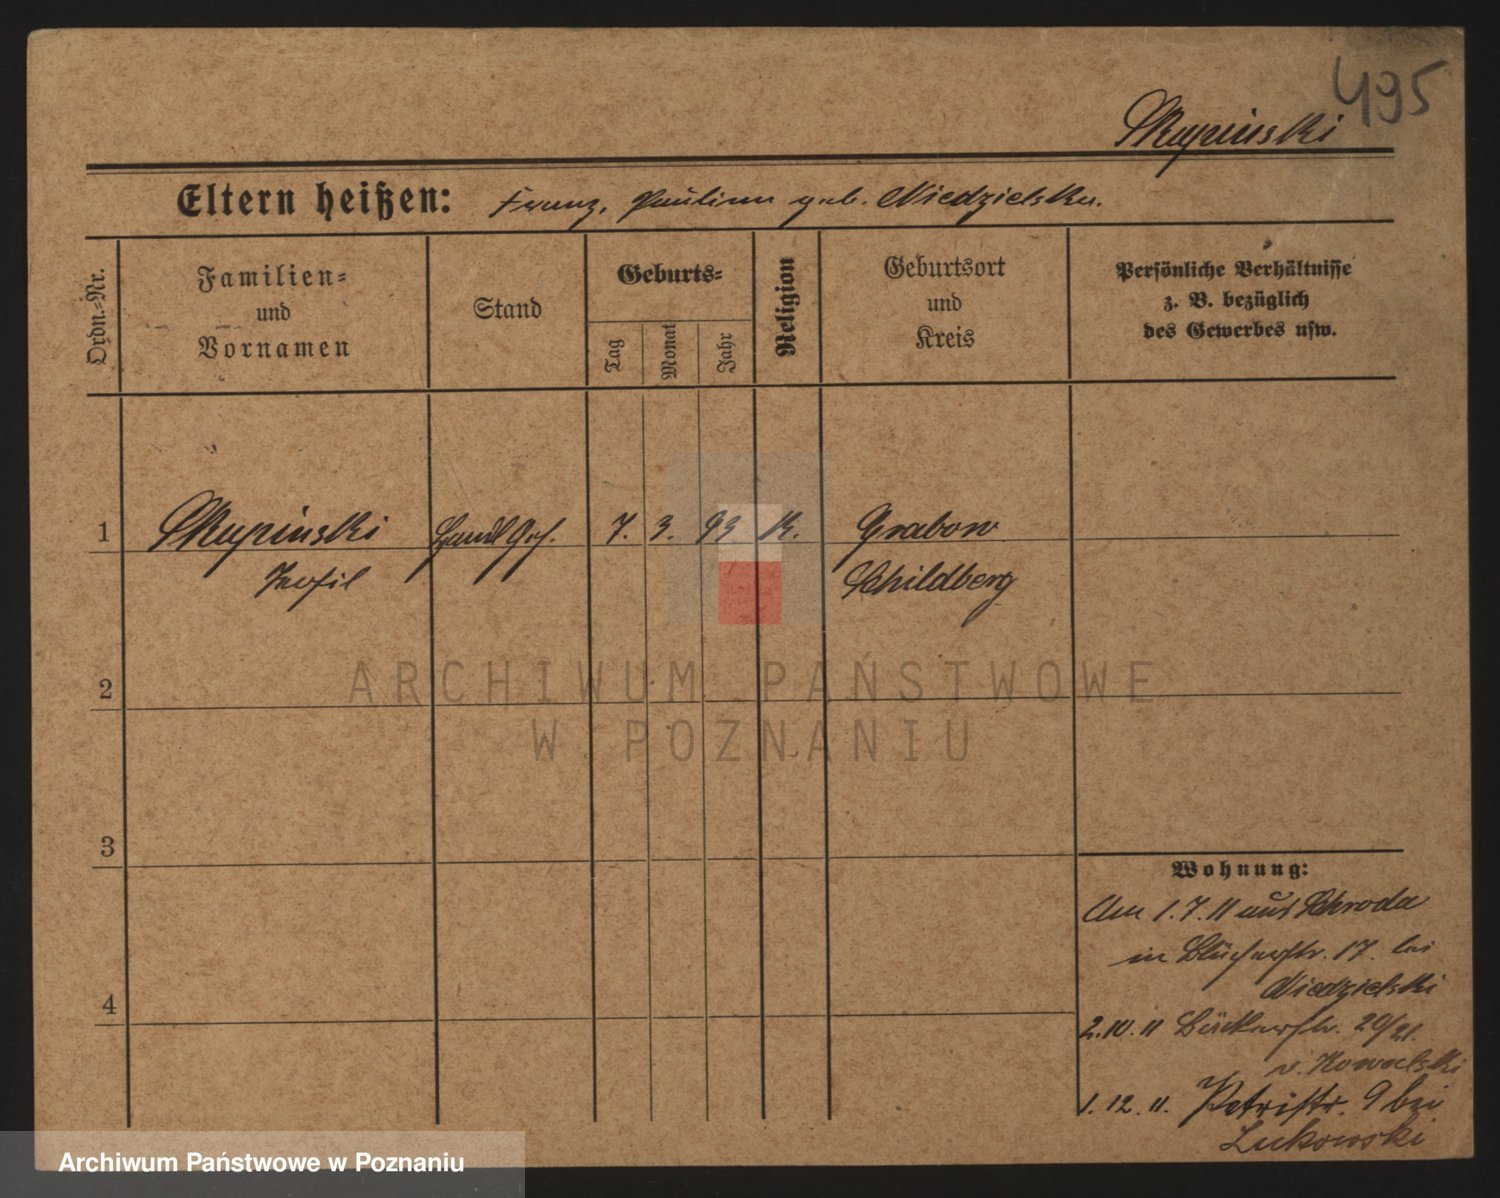 495
Skupinski
Eltern heißen: Franz, Paulina geb. Niedzielska.
Ordn.-Nr.
Familien-
und
Vornamen
Stand
Geburts-
Tag
Monat
Jahr
Religion
Geburtsort
und
Kreis
Persönliche Verhältnisse
z. B. bezüglich
des Gewerbes usw.
1 Skupinski Handl Geh. 7. 3. 93 K. Grabow
Teofil Schildberg
ARCHIWUM PAŃSTWOWE
W POZNANIU
2
3
4
Wohnung:
Am 1.7.11 aus Schroda
in Blücherstr. 17. bei
Niedzielski
2.10.11 Bäckerstr. 20/21.
v. Kowalski
1.12.11. Petristr. 9 bei
Lukowski
Archiwum Państwowe w Poznaniu